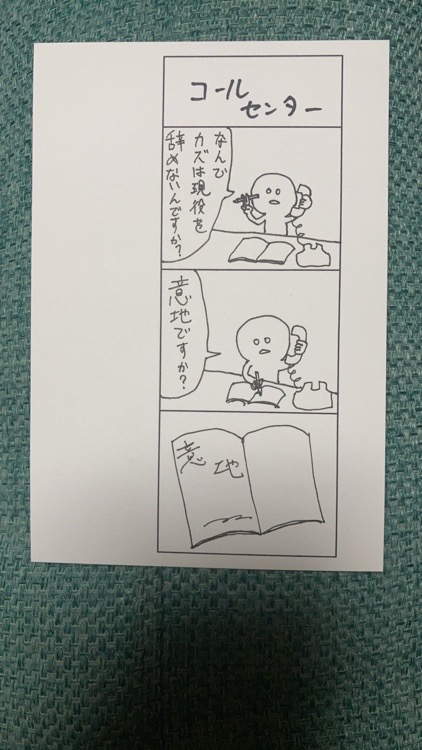 コール
センター
なんで
カズは現役を
辞めないんですか?
意地ですか?
意地